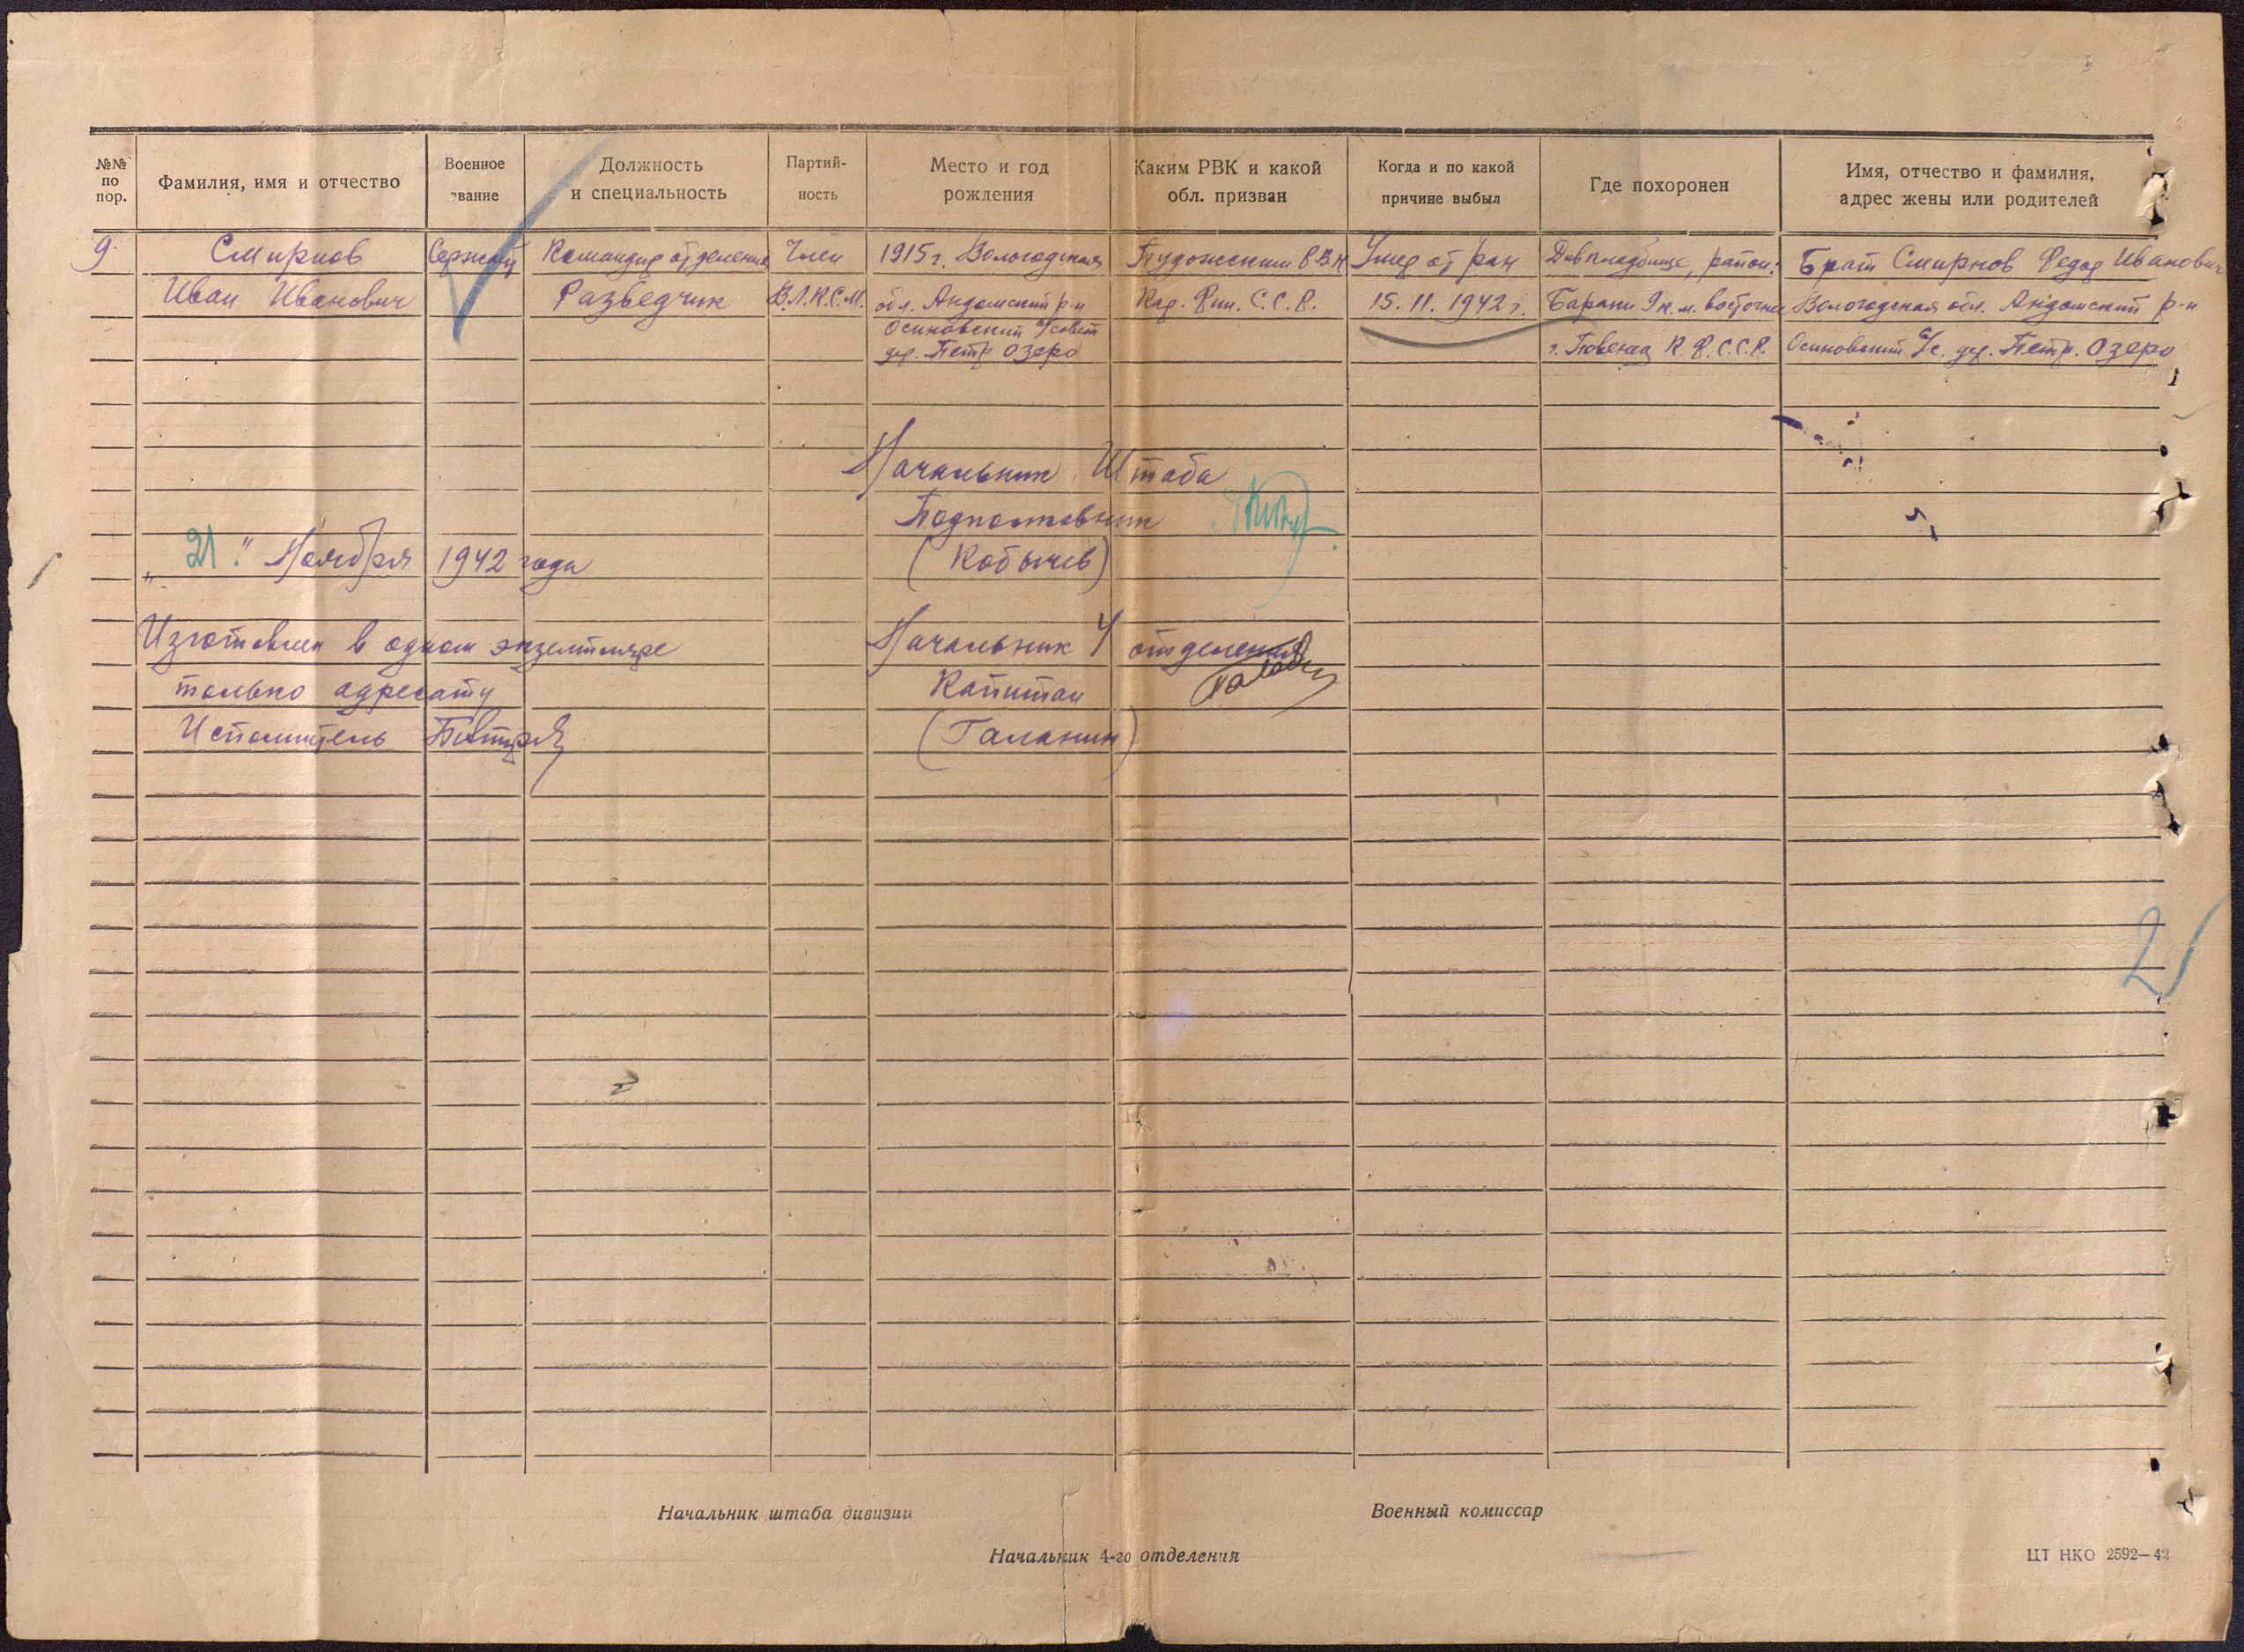 №№ по пор.
Фамилия, имя и отчество
Военное звание
Должность и специальность
Партий- ность
Место и год рождения
Каким РВК и какой обл. призван
Когда и по какой причине выбыл
Где похоронен
Имя, отчество и фамилия, адрес жены или родителей
9. Смирнов Сержант Командир отделения Член 1915 г. Вологодская Пудожским Р.В.К Умер от ран Дивкладбище, район: Брат Смирнов Федор Иванович
Иван Иванович Разведчик В.Л.К.С.М. обл. Андомский р-н Кар. Фин. С.С.Р. 15.11.1942 г. 9 к.м. восточнее Вологодская обл. Андомский р-н
Осиновский с/совет
дер. Петр Озеро г. Повенец К.Ф.С.С.Р. Осиновский с/с. дер. Петр. Озеро
Начальник Штаба
Подполковник
„21“ Ноября 1942 года (Кобычев)
Изготовлен в одном экземпляре Начальник 4 отделения
только адресату Капитан
Исполнитель (Галанин)
2
Начальник штаба дивизии Военный комиссар
Начальник 4-го отделения
ЦТ НКО 2592—42